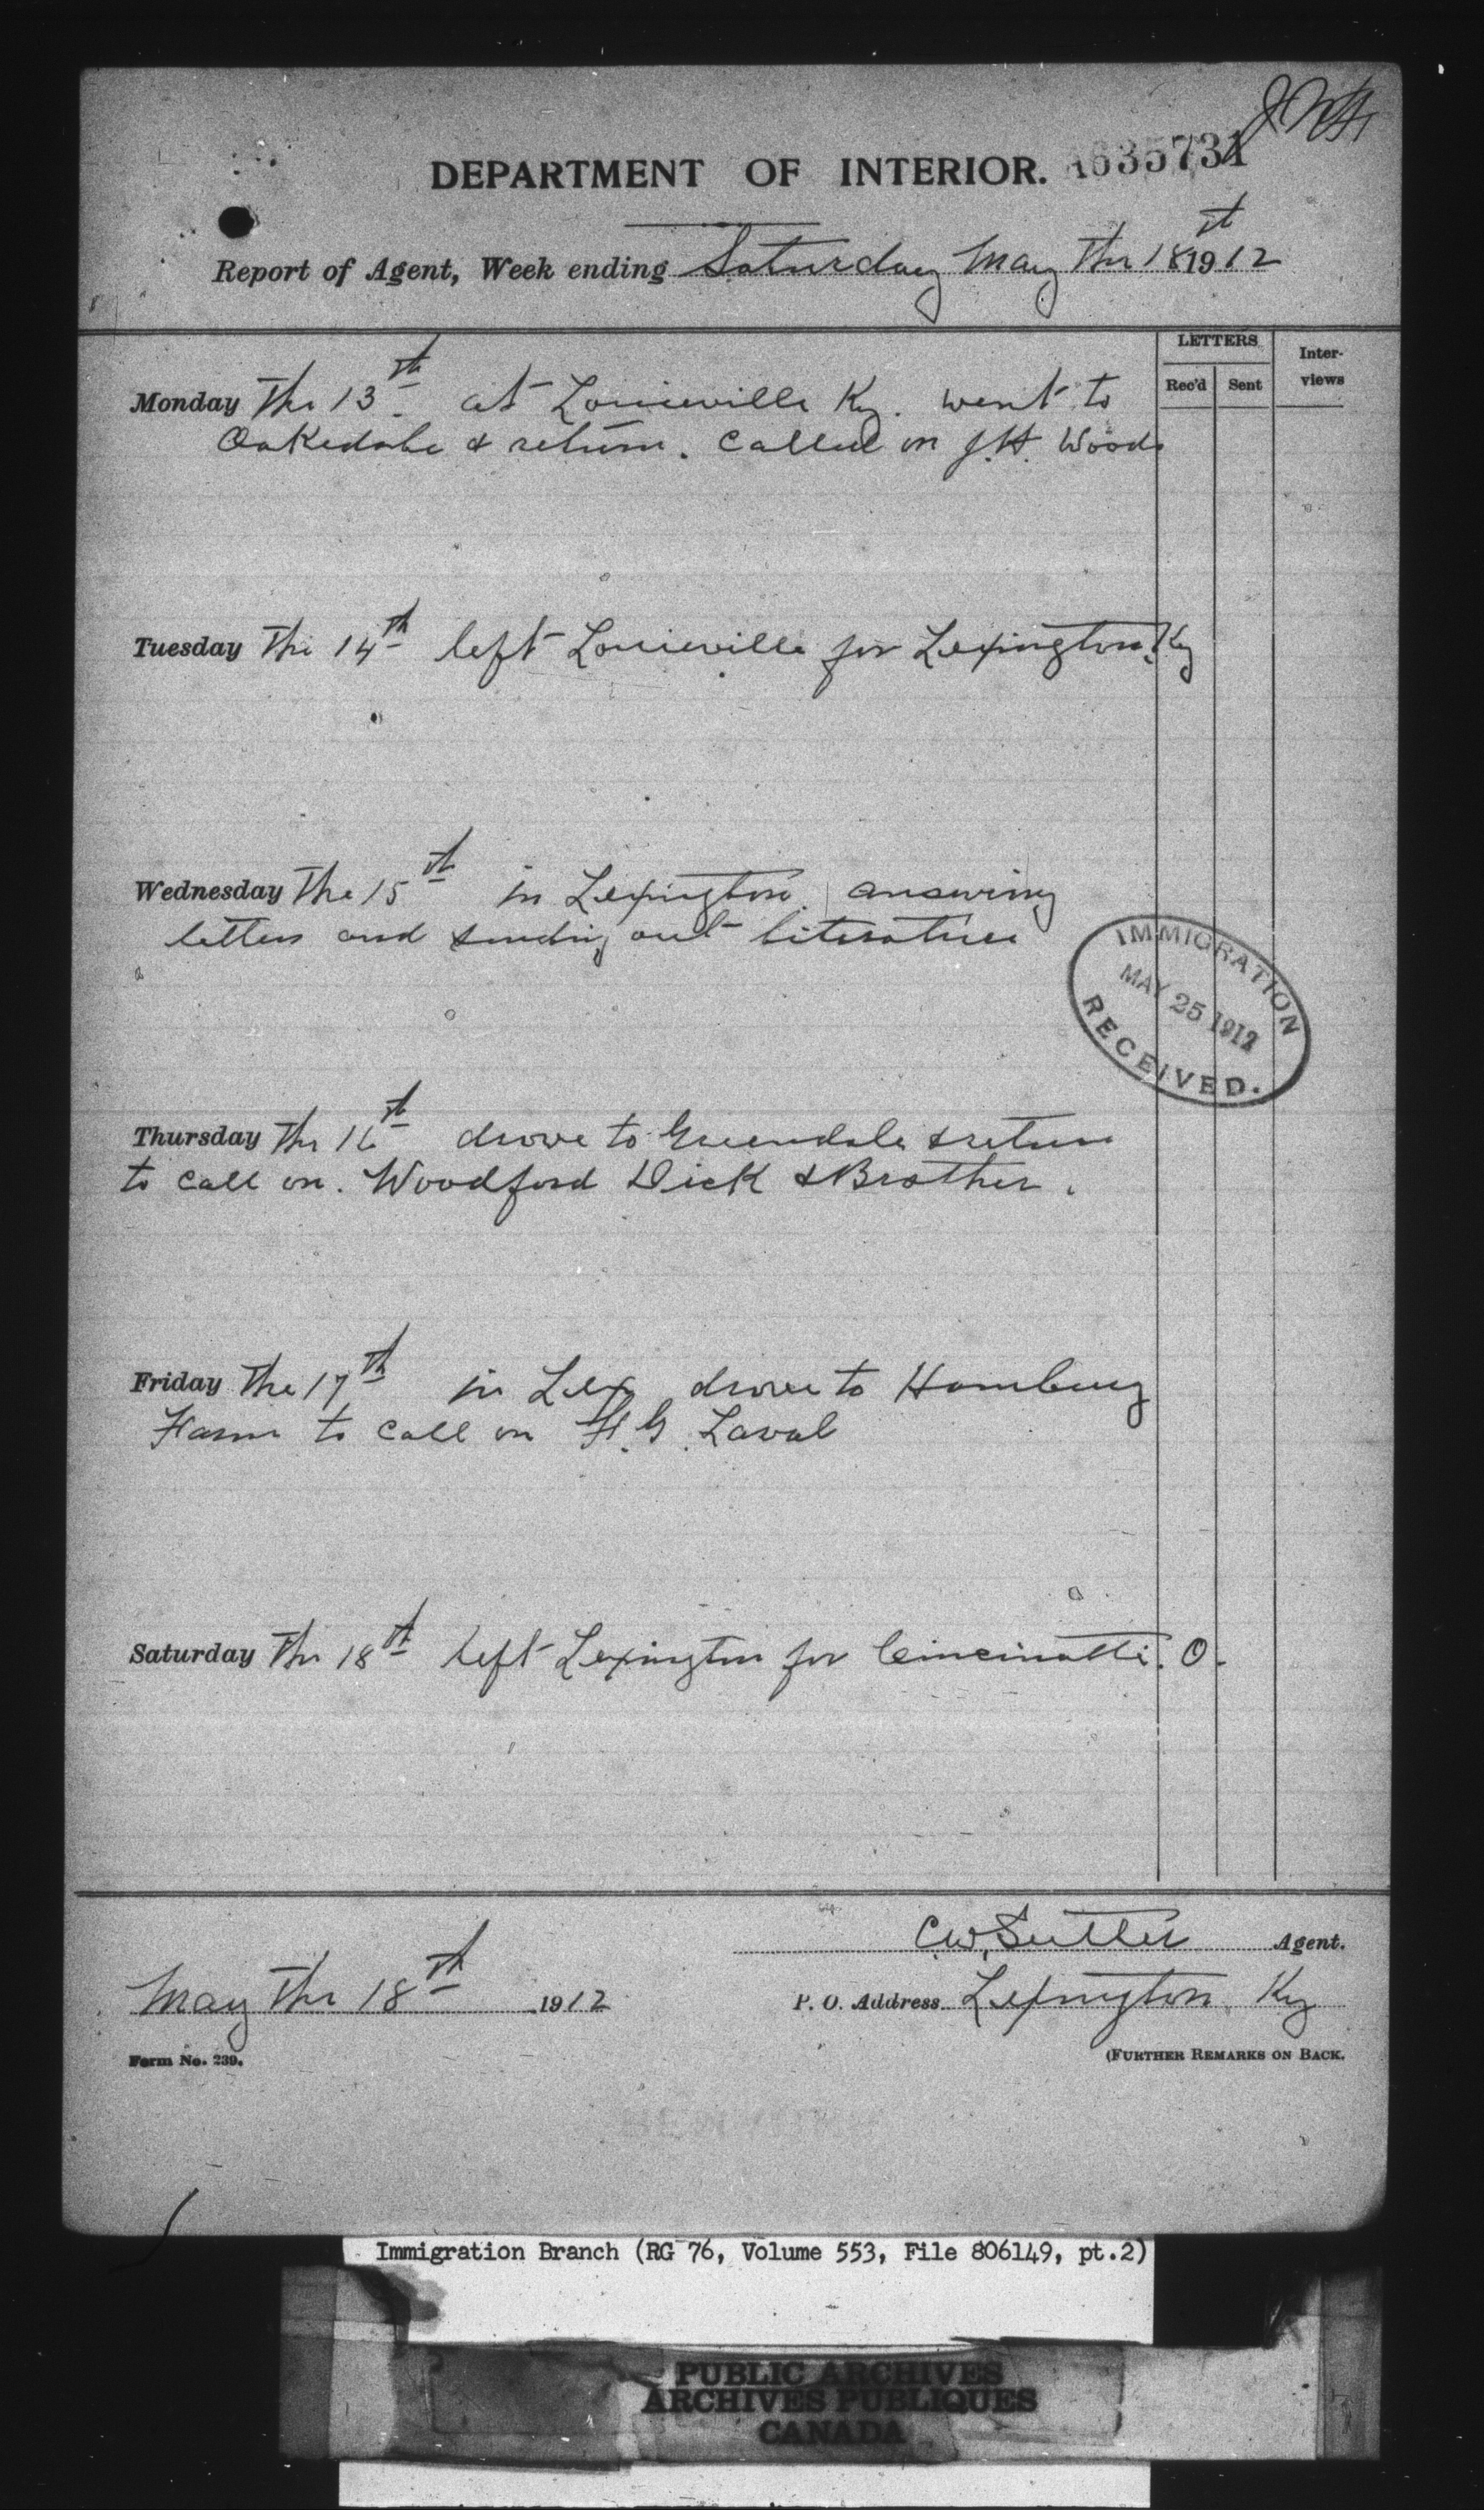 DEPARTMENT OF INTERIOR. A635731
Report of Agent, Week ending Saturday May The 18th 1912
LETTERS
Rec'd Sent
Inter-
views
Monday The 13th at Louieville Ky. went to
Oakedale & return. Called on J.H. Woods
Tuesday The 14th left Louieville for Lexington. Ky
Wednesday The 15th in Lexington. answring
letters and sending out literature
IMMIGRATION
MAY 25 1912
RECEIVED.
Thursday The 16th drove to Greendale & return
to call on. Woodford Dick & Brother.
Friday The 17th in Lex drove to Hamburg
Farm to call on H.G. Laval
Saturday The 18th Left Lexington for Cincinatti. O.
C.W. Sutter Agent.
May The 18th 1912
P. O. Address Lexington Ky
Form No. 239.
(FURTHER REMARKS ON BACK.
Immigration Branch (RG 76, Volume 553, File 806149, pt.2)
PUBLIC ARCHIVES
ARCHIVES PUBLIQUES
CANADA